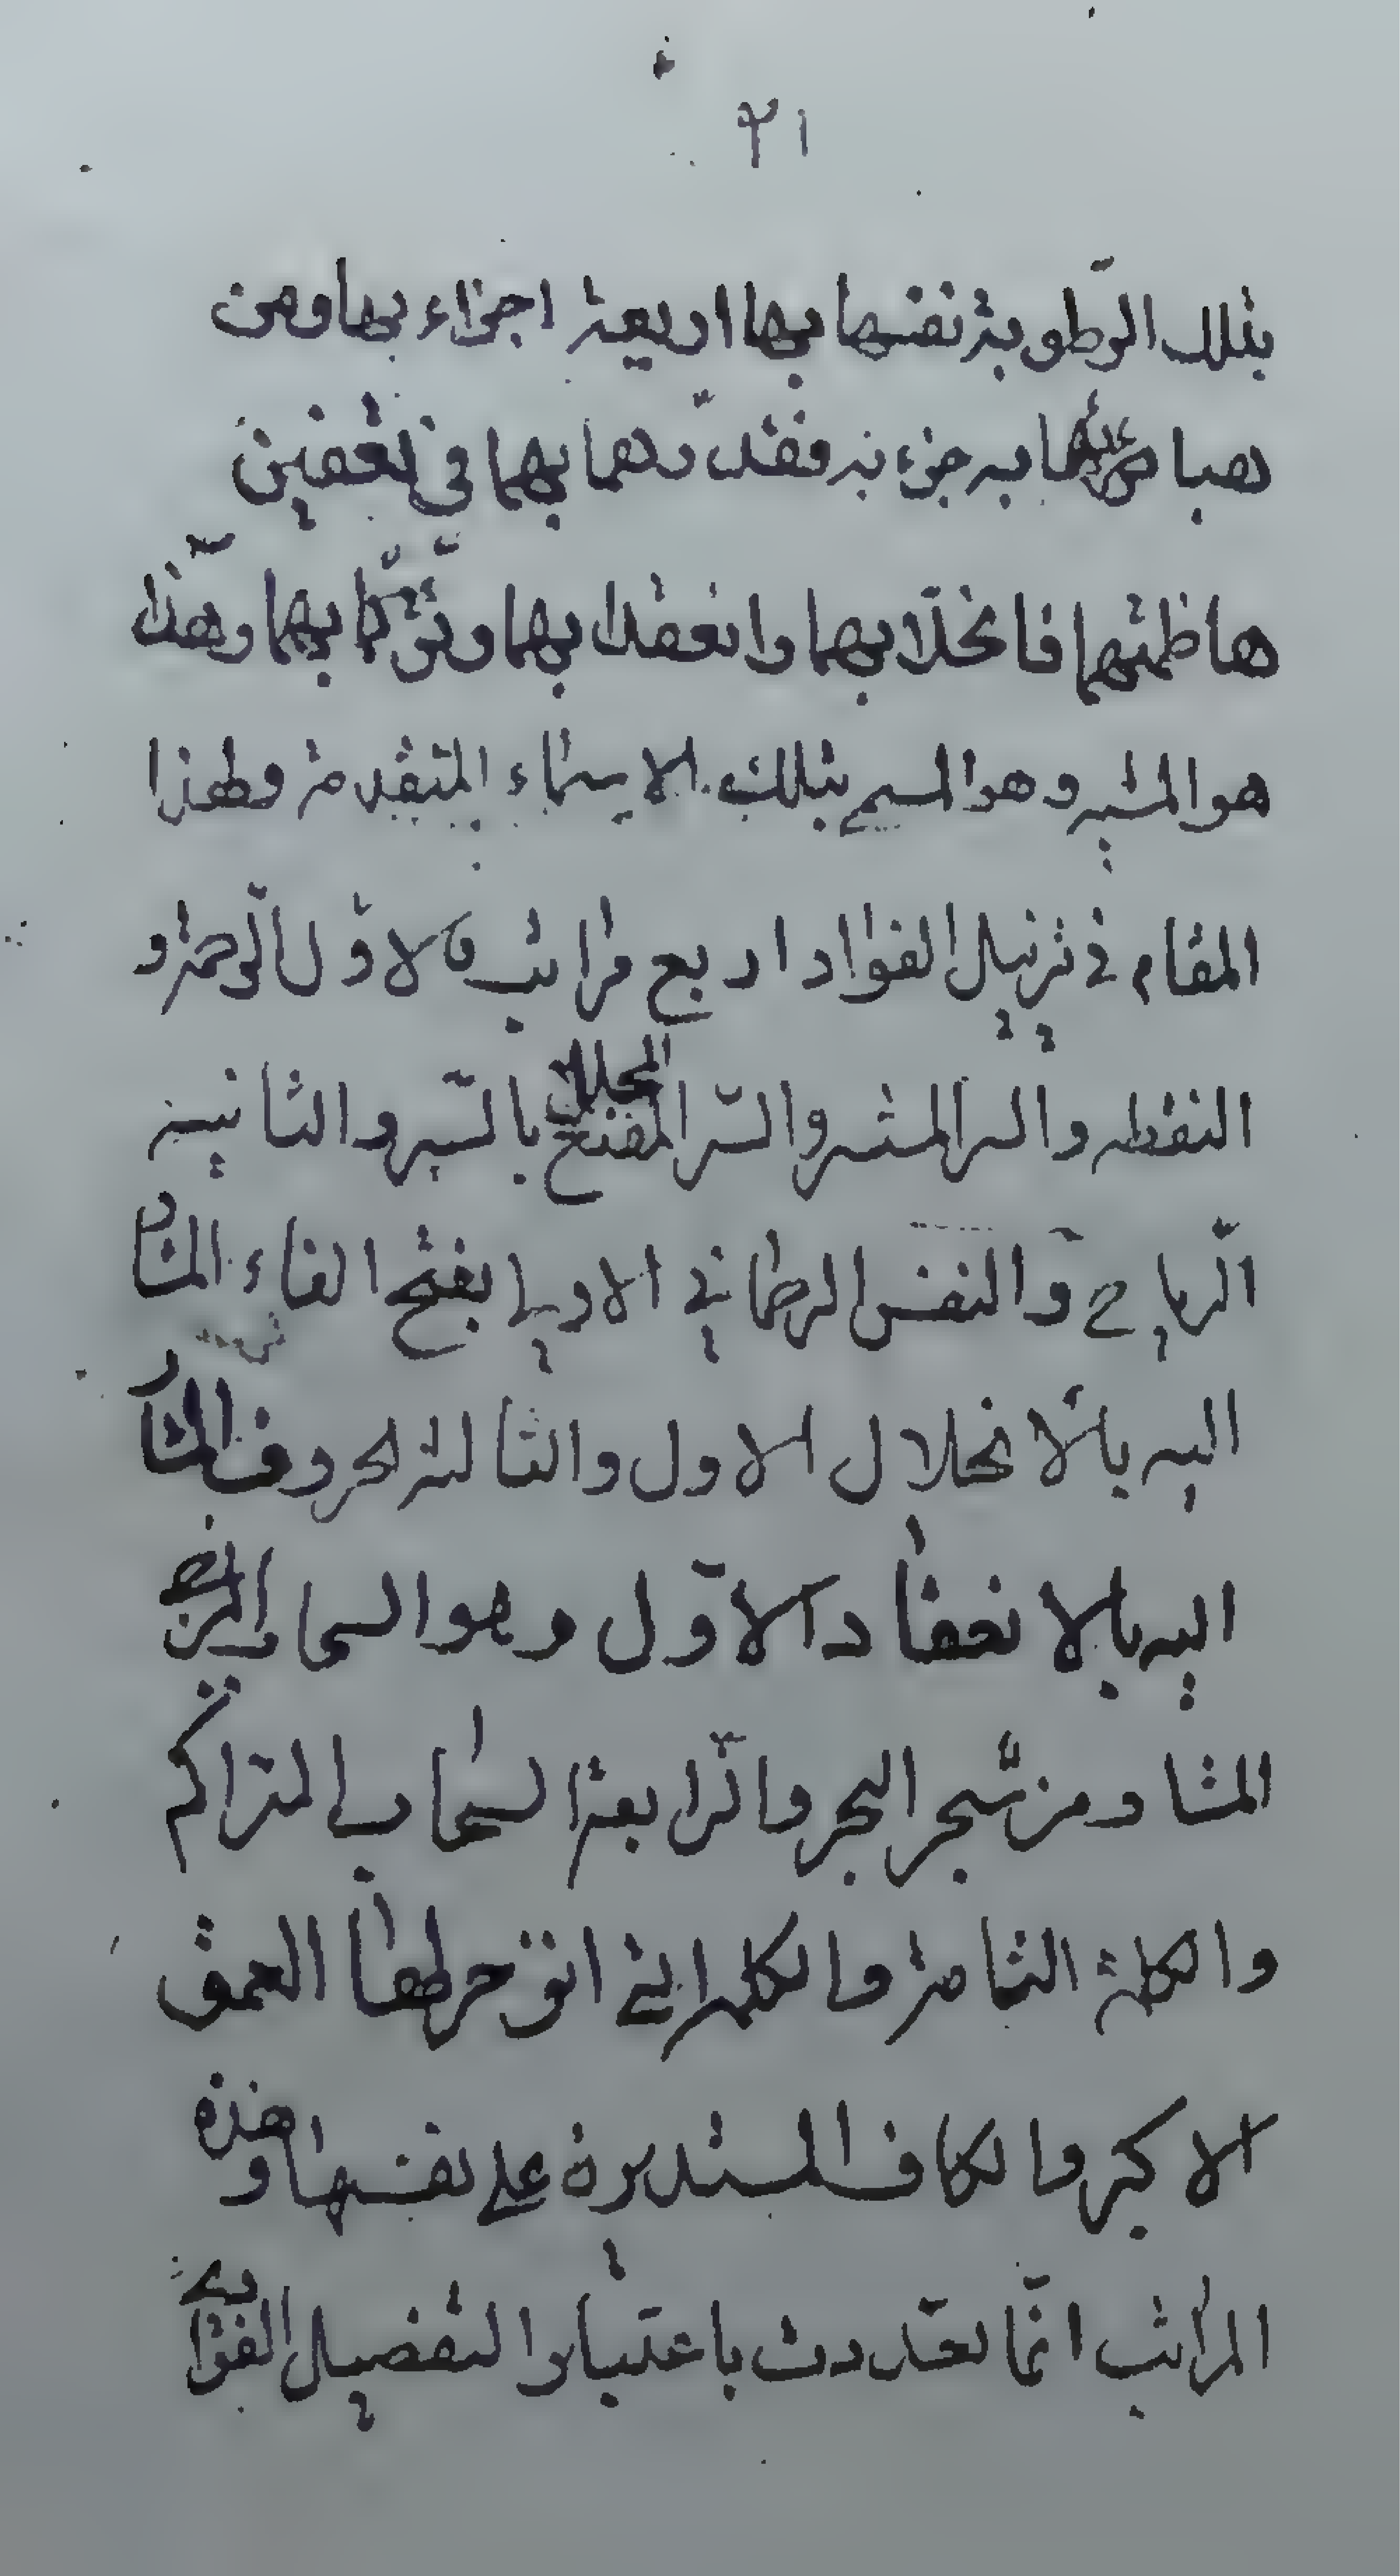 ٢١
بتلك الرّطوبة نفسها بها اربعة اجزاء بها ومن
هبائها به جزء به فقدّرهما بهما في تعفين
هاظمتهما فانحلّا بهما وانعقدا بهما وتراكما بهما وهذا
هو المشية وهو المسمى بتلك الاسماء المتقدمة ولهذا
المقام في ترتيل الفؤاد اربع مراتب فالاوّل الرّحمة و
النقطة والسر المستسر والسّر المقنع المجلل بالسّر والثانية
الرّياح و النفس الرحماني الاولى بفتح الفاء المشار
اليه بالانحلال الاول والثالثة الحروف المشار
اليه بالانعقاد الاوّل وهو السحاب المزجى
المشار من شجر البحر والرّابعة السحاب المتراكم
والكلمة التامة والكلمة التي انزجر لها العمق
الاكبر والكاف المستديرة على نفسها وهذه
المراتب انّما تعدّدت باعتبار التفصيل الفؤادي